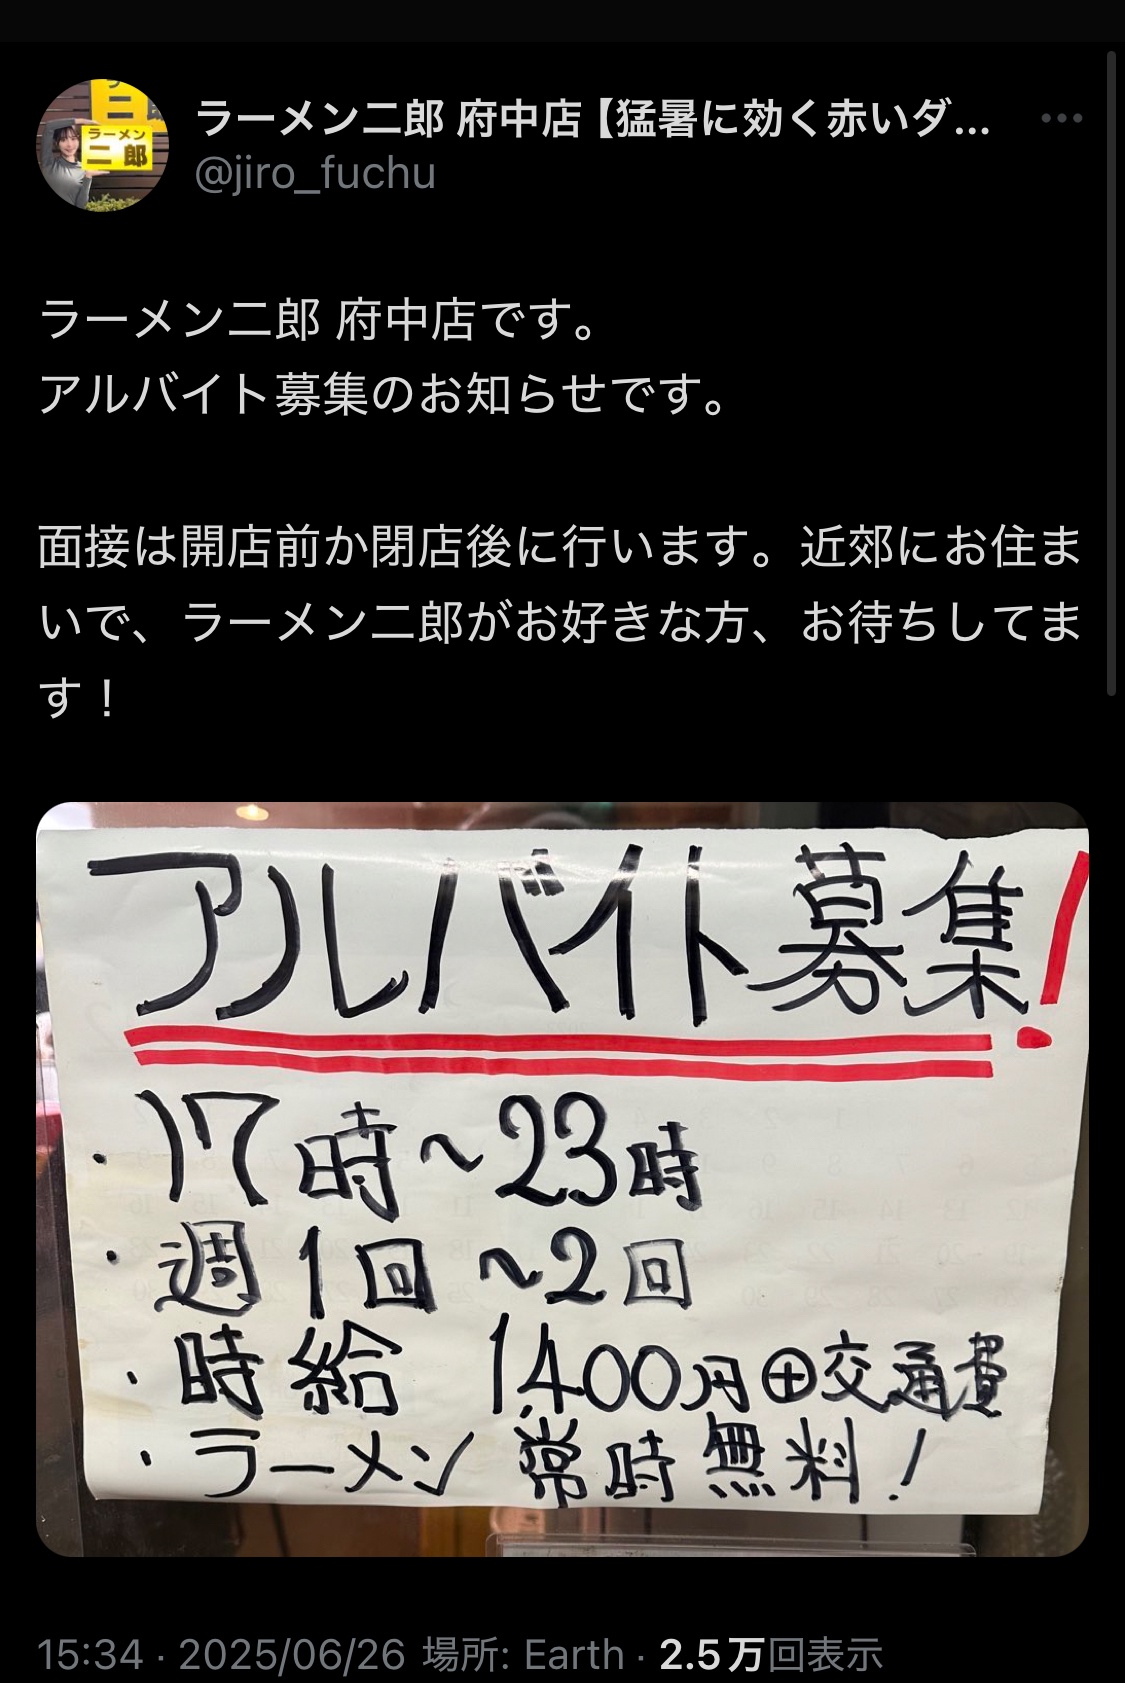 ラーメン二郎 府中店【猛暑に効く赤いダ…
@jiro_fuchu
ラーメン二郎
ラーメン二郎 府中店です。
アルバイト募集のお知らせです。
面接は開店前か閉店後に行います。近郊にお住ま
いで、ラーメン二郎がお好きな方、お待ちしてま
す！
アルバイト募集!
・17時〜23時
・週1回〜2回
・時給 1400円⊕交通費
・ラーメン 常時無料!
15:34 · 2025/06/26 場所: Earth · 2.5万回表示